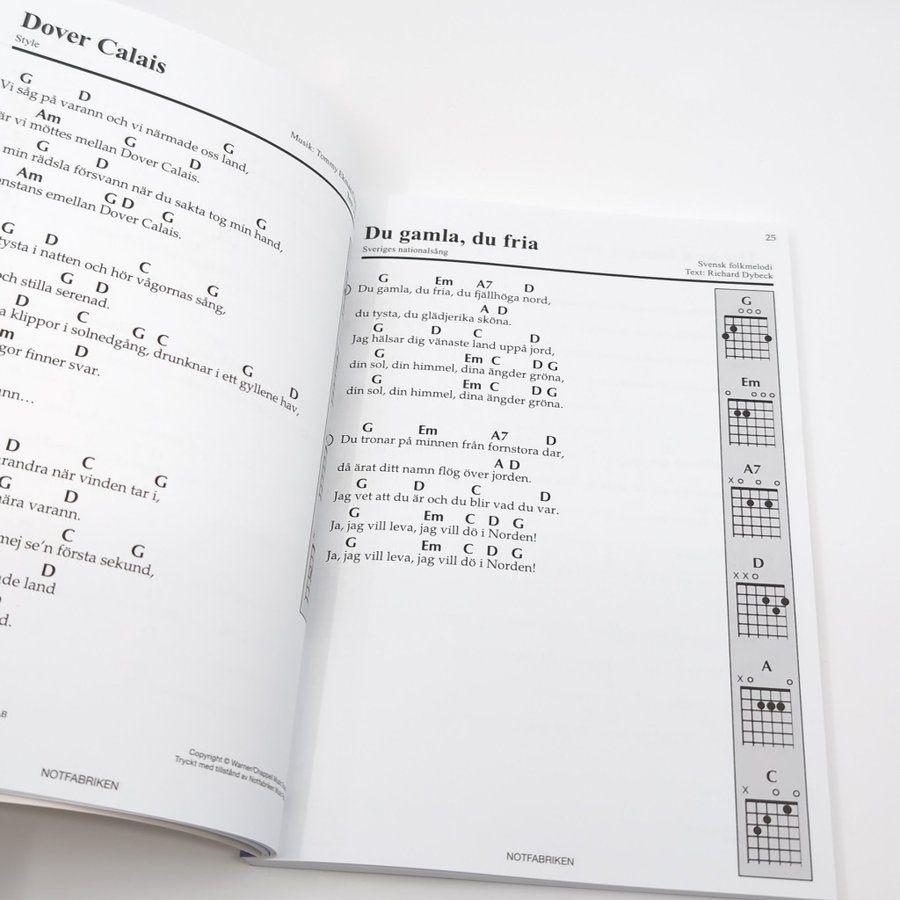 Dover Calais
Style
Musik: Tommy
G D G
Vi såg på varann och vi närmade oss land,
Am G D
är vi möttes mellan Dover Calais.
G D G
min rädsla försvann när du sakta tog min hand,
Am G D G
emellan Dover Calais.
G D C G
tysta i natten och hör vågornas sång,
G D
och stilla serenad.
D C G C G D
klippor i solnedgång, drunknar i ett gyllene hav,
D
finner svar.
D C G
när vinden tar i,
G D
nära varann.
C G
mej se'n första sekund,
D
land
Copyright © Warner/Chappell
Tryckt med tillstånd av Notfabriken
NOTFABRIKEN
Du gamla, du fria
25
Sveriges nationalsång
Svensk folkmelodi
Text: Richard Dybeck
G Em A7 D
Du gamla, du fria, du fjällhöga nord,
A D
du tysta, du glädjerika sköna.
G D C D
Jag hälsar dig vänaste land uppå jord,
G Em C D G
din sol, din himmel, dina ängder gröna,
G Em C D G
din sol, din himmel, dina ängder gröna.
G Em A7 D
Du tronar på minnen från fornstora dar,
A D
då ärat ditt namn flög över jorden.
G D C D
Jag vet att du är och du blir vad du var.
G Em C D G
Ja, jag vill leva, jag vill dö i Norden!
G Em C D G
Ja, jag vill leva, jag vill dö i Norden!
G
Em
A7
D
A
C
NOTFABRIKEN